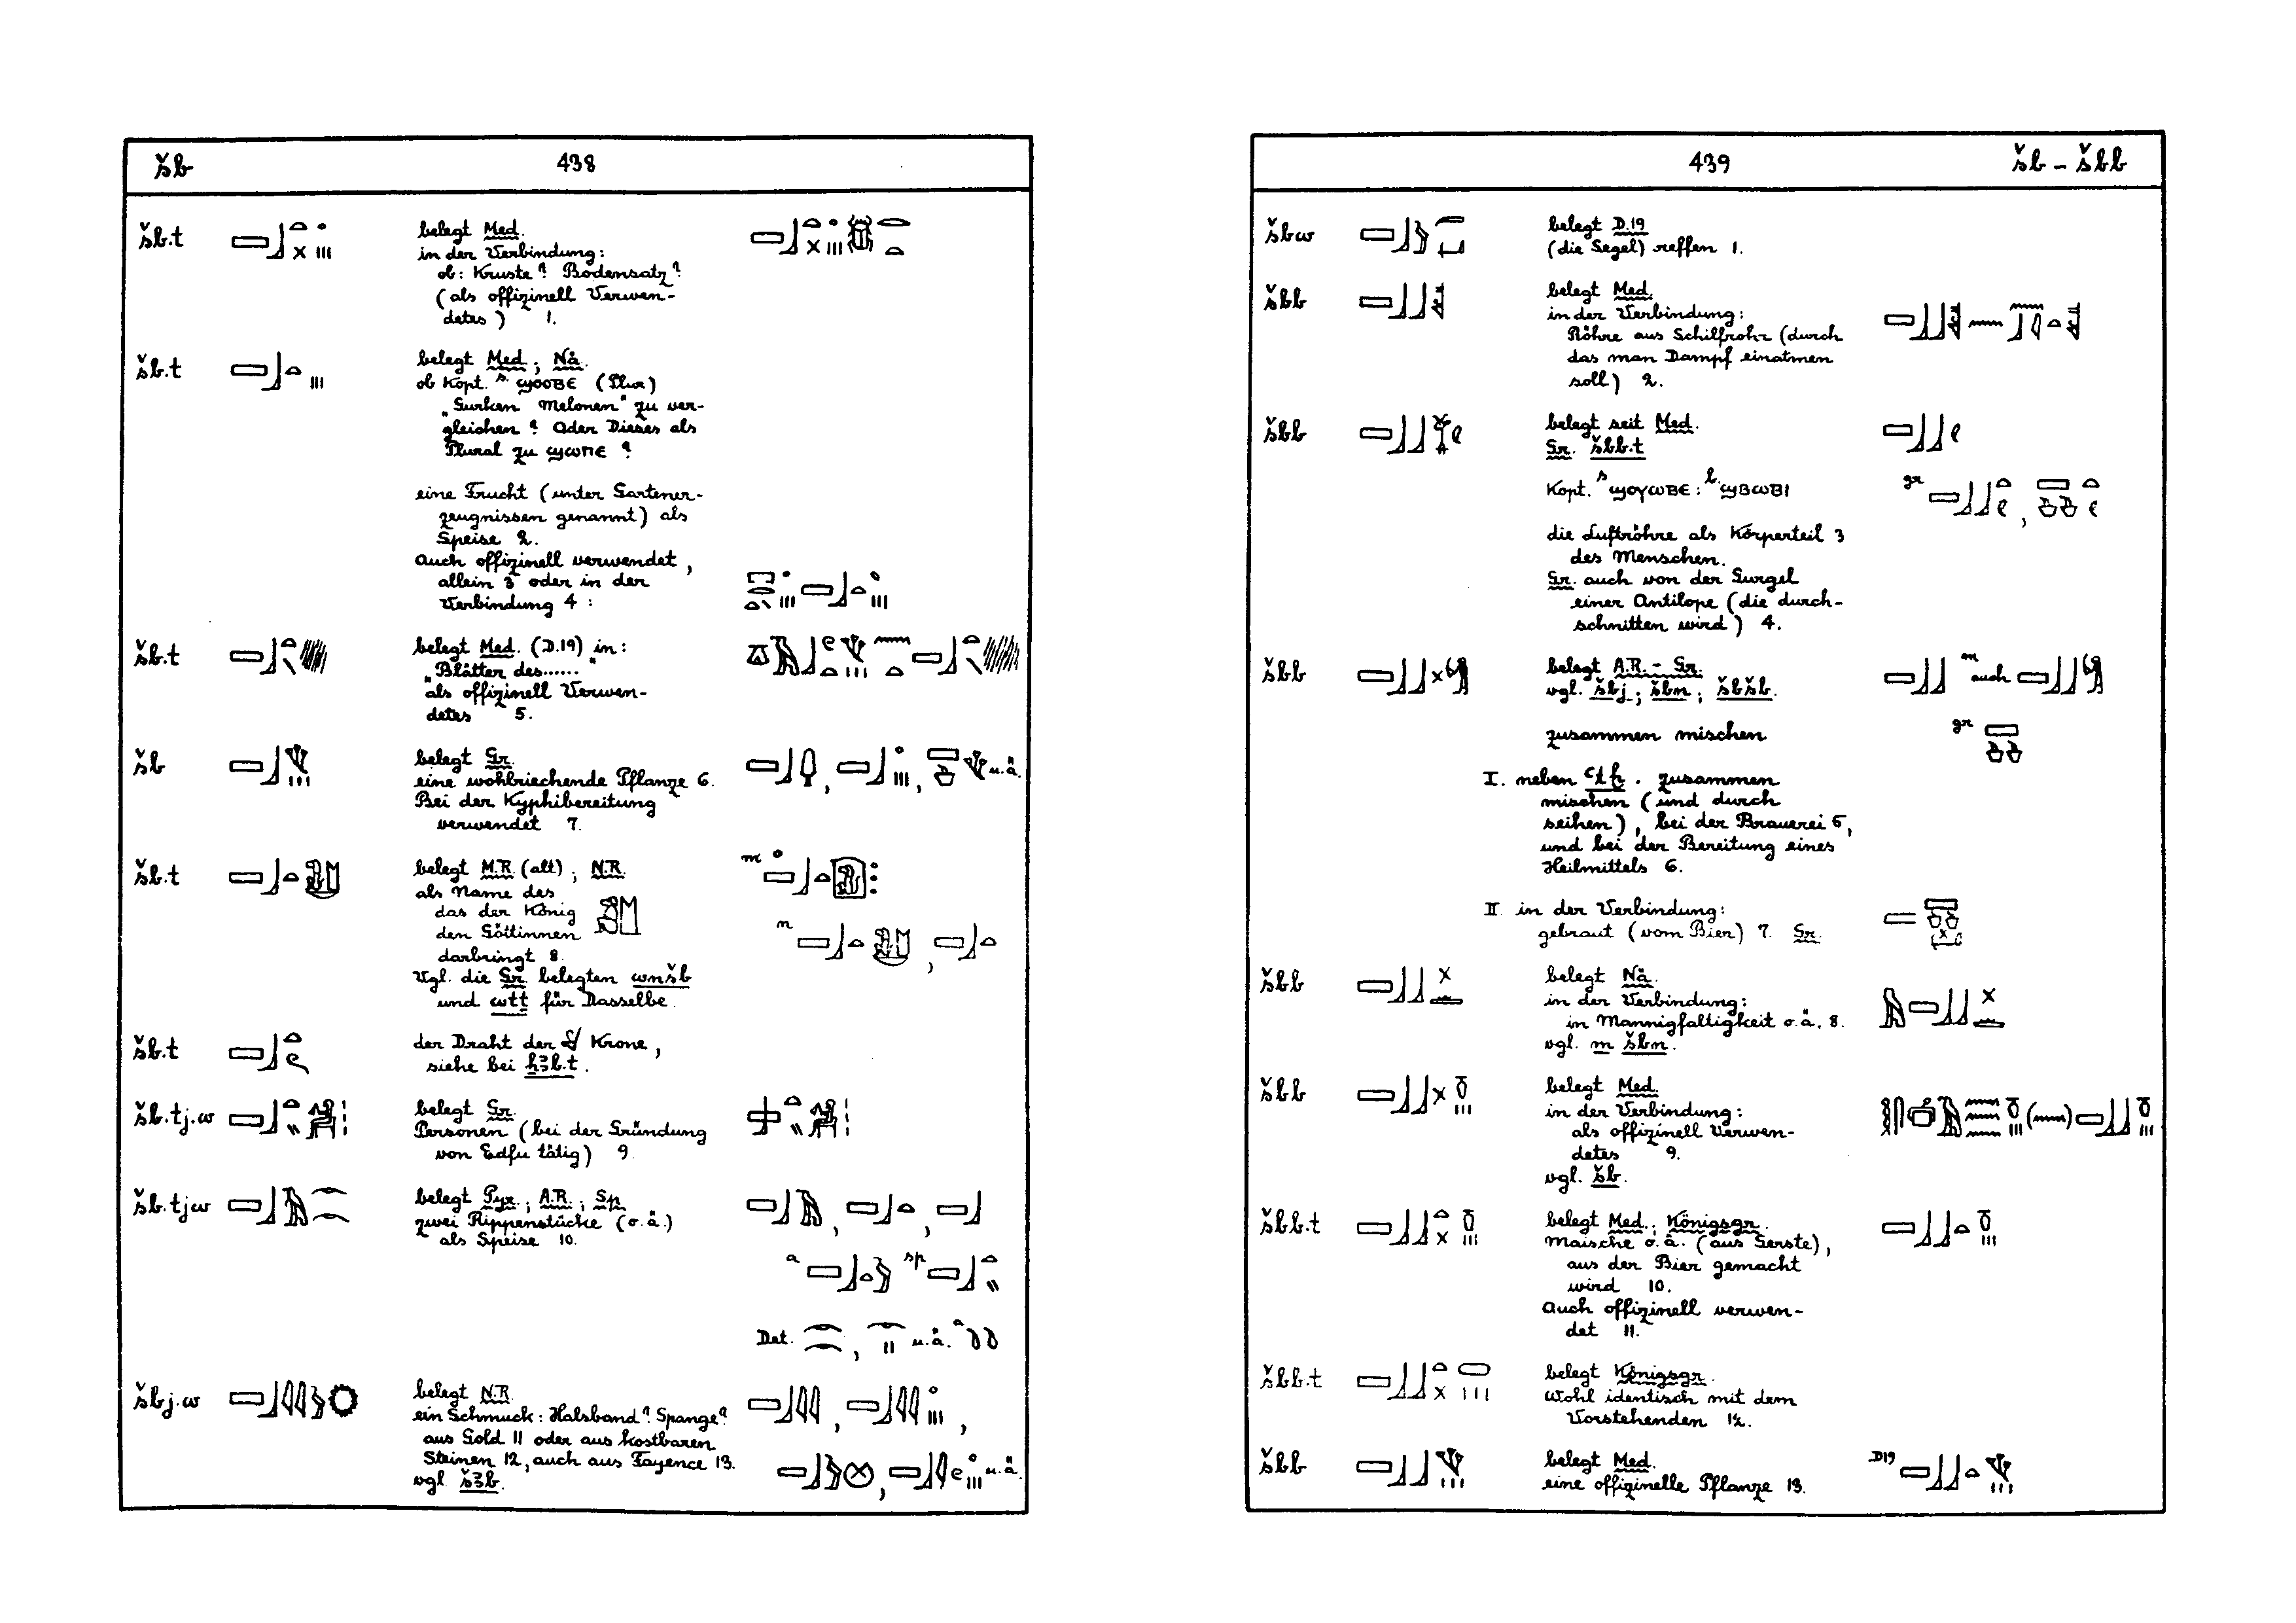 šb
438
šb.t
belegt Med.
in der Verbindung:
ob: Kruste? Bodensatz?
(als offizinell Verwen-
detes) 1.
šb.t
belegt Med.; Nä.
ob Kopt. s. ϣⲟⲟⲃⲉ (Plur)
„Gurken Melonen" zu ver-
gleichen? Oder Dieses als
Plural zu ϣⲱⲡⲉ?
eine Frucht (unter Gartener-
zeugnissen genannt) als
Speise 2.
Auch offizinell verwendet,
allein 3 oder in der
Verbindung 4:
šb.t
belegt Med. (D.19) in:
„Blätter des......"
als offizinell Verwen-
detes 5.
šb
belegt Gr.
eine wohlriechende Pflanze 6.
Bei der Kyphibereitung
verwendet 7.
u.ä.
šb.t
belegt M.R. (alt); N.R.
als Name des
das der König
den Göttinnen
darbringt 8.
Vgl. die Gr. belegten wnšb
und wtt für Dasselbe.
m
n
šb.t
der Draht der Krone,
siehe bei ḫꜣb.t.
šb.tj.w
belegt Gr.
Personen (bei der Gründung
von Edfu tätig) 9.
šb.tjw
belegt Pyr.; A.R.; Sp.
zwei Rippenstücke (o.ä.)
als Speise 10.
a
sp
Det.
u.ä. a
šbj.w
belegt N.R.
ein Schmuck: Halsband? Spange?
aus Gold 11 oder aus kostbaren
Steinen 12, auch aus Fayence 13.
vgl. šꜣb.
u.ä.
439
šb – šbb
šbw
belegt D.19
(die Segel) reffen 1.
šbb
belegt Med.
in der Verbindung:
Röhre aus Schilfrohr (durch
das man Dampf einatmen
soll) 2.
šbb
belegt seit Med.
Gr. šbb.t
Kopt. s ϣⲟⲩⲱⲃⲉ: b. ϣⲃⲱⲃⲓ
gr
die Luftröhre als Körperteil 3
des Menschen.
Gr. auch von der Gurgel
einer Antilope (die durch-
schnitten wird) 4.
šbb
belegt A.R. – Gr.
vgl. šbj; šbn; šbšb.
m auch
gr
zusammen mischen
I. neben ꜥtḫ. zusammen
mischen (und durch
seihen), bei der Brauerei 5,
und bei der Bereitung eines
Heilmittels 6.
II in der Verbindung:
gebraut (vom Bier) 7. Gr.
šbb
belegt Nä.
in der Verbindung:
in Mannigfaltigkeit o.ä. 8.
vgl. m šbn.
šbb
belegt Med.
in der Verbindung:
als offizinell Verwen-
detes 9.
vgl. šb.
šbb.t
belegt Med.; Königsgr.
Maische o.ä. (aus Gerste),
aus der Bier gemacht
wird 10.
Auch offizinell verwen-
det 11.
šbb.t
belegt Königsgr.
Wohl identisch mit dem
Vorstehenden 12.
šbb
belegt Med.
eine offizinelle Pflanze 13.
D19